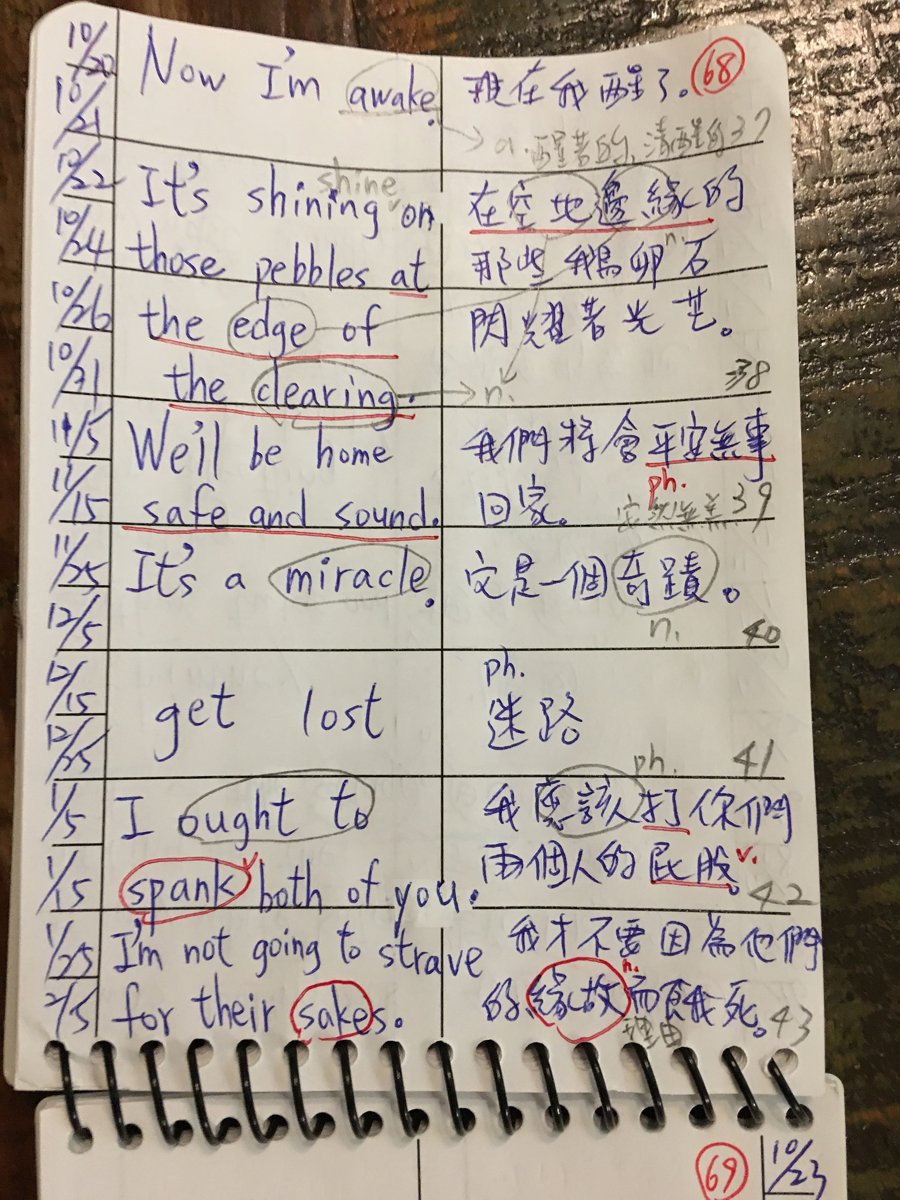 10/20
10/21
12/22
10/24
10/26
10/31
11/5
11/15
11/25
12/5
12/15
12/25
1/5
1/15
1/25
2/5
Now I'm awake.
現在我醒了。 68
a. 醒著的, 清醒的 37
shine
It's shining on
v.
those pebbles at
the edge of
the clearing.
在空地邊緣的
n.
那些鵝卵石
閃耀著光芒。
n.
38
We'll be home
safe and sound.
我們將會平安無事
ph.
回家。
安然無恙 39
It's a miracle.
它是一個奇蹟。
n. 40
get lost
ph.
迷路
41
I ought to
spank both of you.
ph.
我應該打你們
兩個人的屁股。
v.
42
I'm not going to strave
for their sakes.
我才不要因為他們
n.
的緣故而餓死。
理由 43
69 10/23